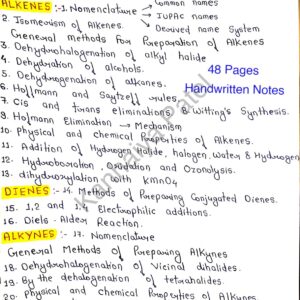 ALKENES :- 1. Nomenclature → Common names
→ IUPAC names
→ Derived name System
2. Isomerism of Alkenes.
General Methods For Preparation of Alkenes
3. Dehydrohalogenation of alkyl halide
4. Dehydration of alcohols.
5. Dehydrogenation of alkanes.
6. Hoffmann and Saytzeff rules.
7. Cis and trans eliminations & Witting's Synthesis.
9. Hofmann Elimination → Mechanism
10. Physical and chemical Properties of Alkenes.
11. Addition of Hydrogen Halide, halogen, water & Hydrogen
12. Hydroboration, Oxidation and Ozonolysis.
13. dihydroxylation with KMnO4
DIENES :- 14. Methods of Preparing Conjugated Dienes.
15. 1,2 and 1,4 Electrophilic additions.
16. Diels - Alder Reaction.
ALKYNES :- 17. Nomenclature
General Methods of Preparing Alkynes
18. Dehydrohalogenation of Vicinal dihalides.
19. By the dehalogenation of tetrahalides.
20. Physical and chemical Properties of Alkynes
48 Pages
Handwritten Notes